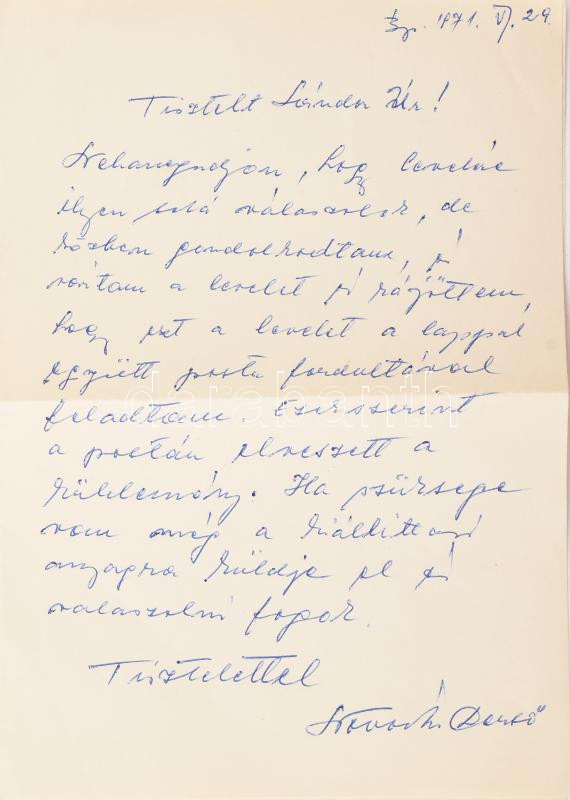 Bp. 971. VI. 29.
Tisztelt Sándor Úr!
Neharagudjon, hogy levelére
ilyen soká válaszolok, de
közben gondolkodtam, és
a levelet és rájöttem,
hogy ezt a levelet a lappal
együtt posta fordultával
feladtam. Ezekszerint
a postán elveszett a
küldemény. Ha szüksége
van még a kiállítási
anyagra küldje el és
válaszolni fogok.
Tisztelettel
Dezső
darabanth